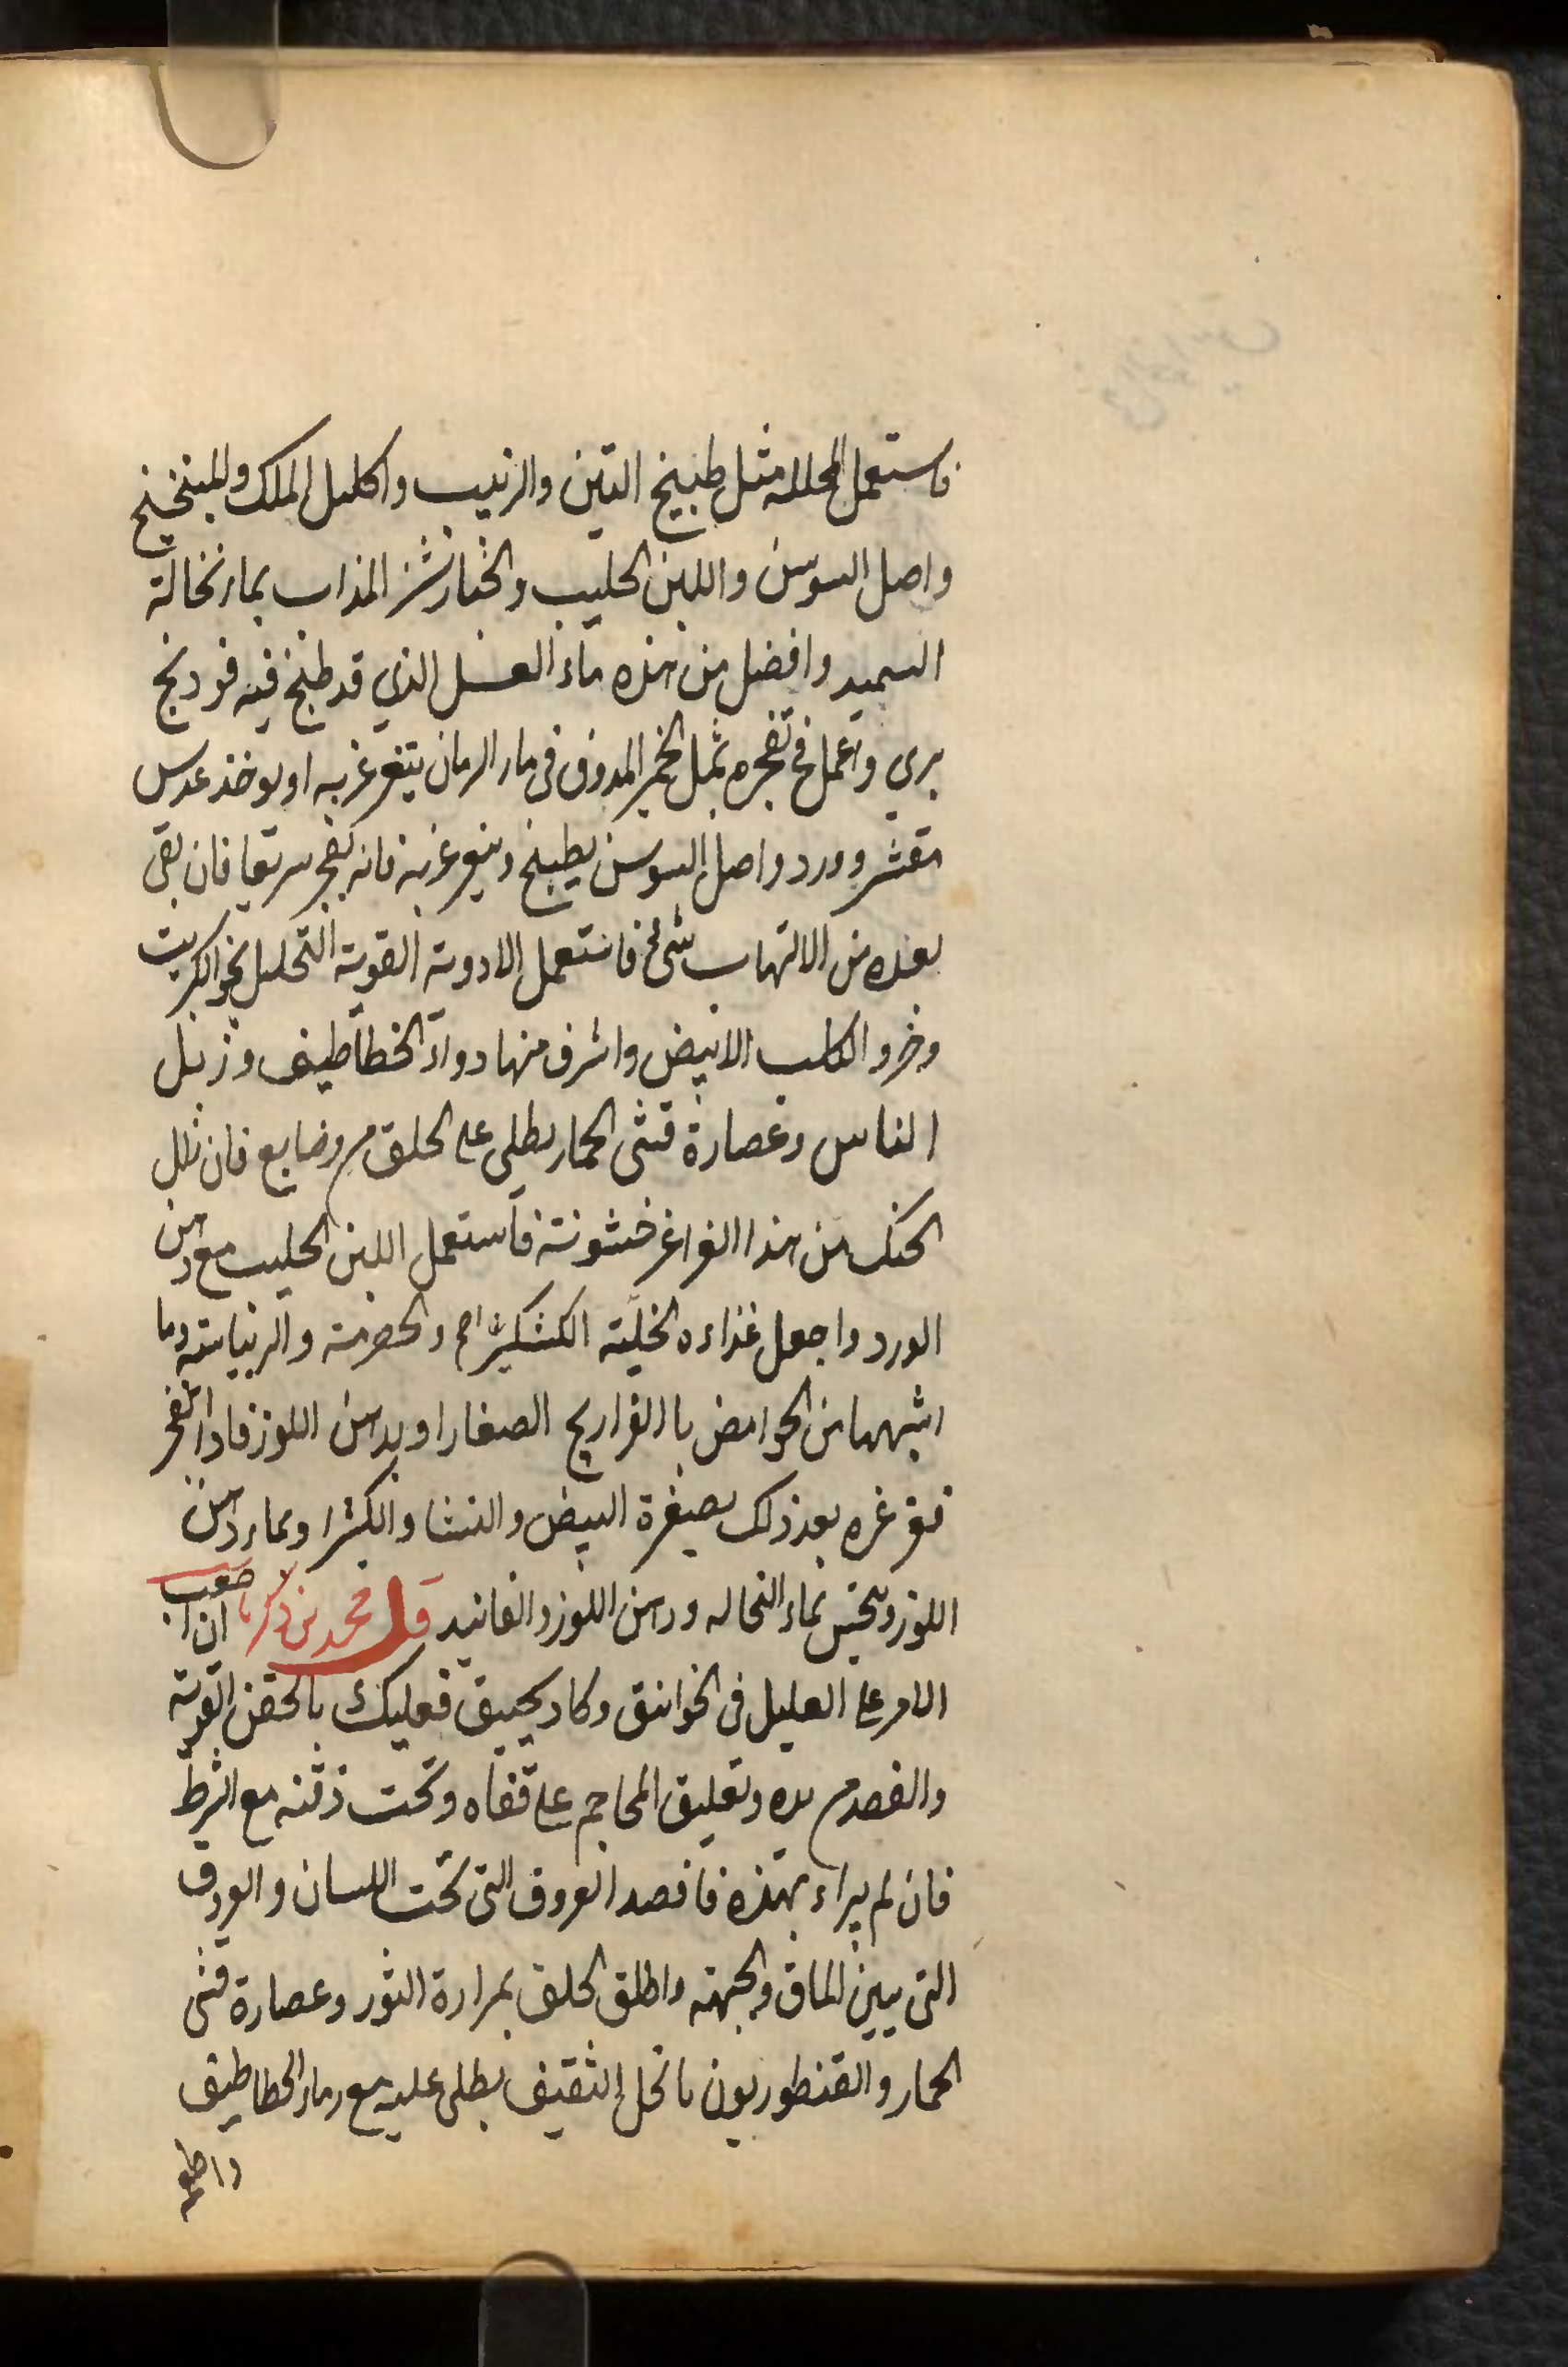 فاستعمل المحللة مثل طبيخ التين والزبيب واكليل الملك والميبختج
واصل السوسن واللبن الحليب والخيارشنبر المذاب بماء نخالة
السميد وافضل من هذه ماء العسل الذي قد طبخ فيه فودنج
بري واعمل في تفجره بمثل الخمير المدوف في ماء الرمان يتغرغر به او يوخذ عدس
مقشر وورد واصل السوسن يطبخ ويتغرغر به فانه يفجر سريعا فان بقى
بعده من الالتهاب شئ فاستعمل الادوية القوية التحليل نحو الكبريت
وخرو الكلب الابيض واشرف منها دواء الخطاطيف وزبل
الناس وعصارة قثى الحمار يطلى على الحلق من فان
الحنك من هذا الغراغر خشونة فاستعمل اللبن الحليب مع دهن
الورد واجعل غذاءه والحصرمية والريباسية وما
اشبهها من الحوامض با الفراريج الصغار او بدهن اللوز فاذا انفجر
فغرغره بعد ذلك بصفرة البيض والنشا والكثيرا وبماء دهن
اللوز ويتحسى بماء النخاله ودهن اللوز والفانيد قال محمد بن زكريا ان صعب
الامر على العليل في الخوانيق وكاد يختنق فعليك بالحقن القوية
والفصد من يده وتعليق المحاجم على قفاه وتحت ذقنه مع الشرط
فان لم يبراء بهذه فافصد العروق التى تحت اللسان والعروق
التى بين الماق والجبهة واطلق الحلق بمرارة الثور وعصارة قثى
الحمار والقنطوريون بالخل الثقيف يطلى عليه مع رماد الخطاطيف